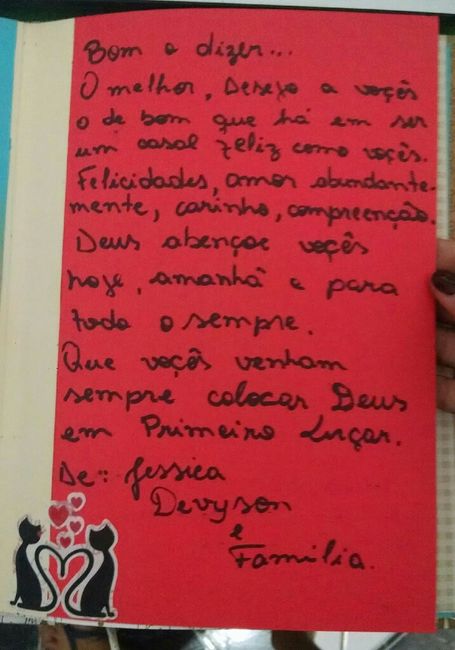 Bom o dizer...
O melhor, Desejo a voçês
o de bom que há em ser
um casal feliz como voçês.
Felicidades, amor abundante-
mente, carinho, compreenção.
Deus abençoe voçês
hoje, amanhã e para
todo o sempre.
Que voçês venham
sempre colocar Deus
em Primeiro Lugar.
De: Jessica
Devyson
e
Família.